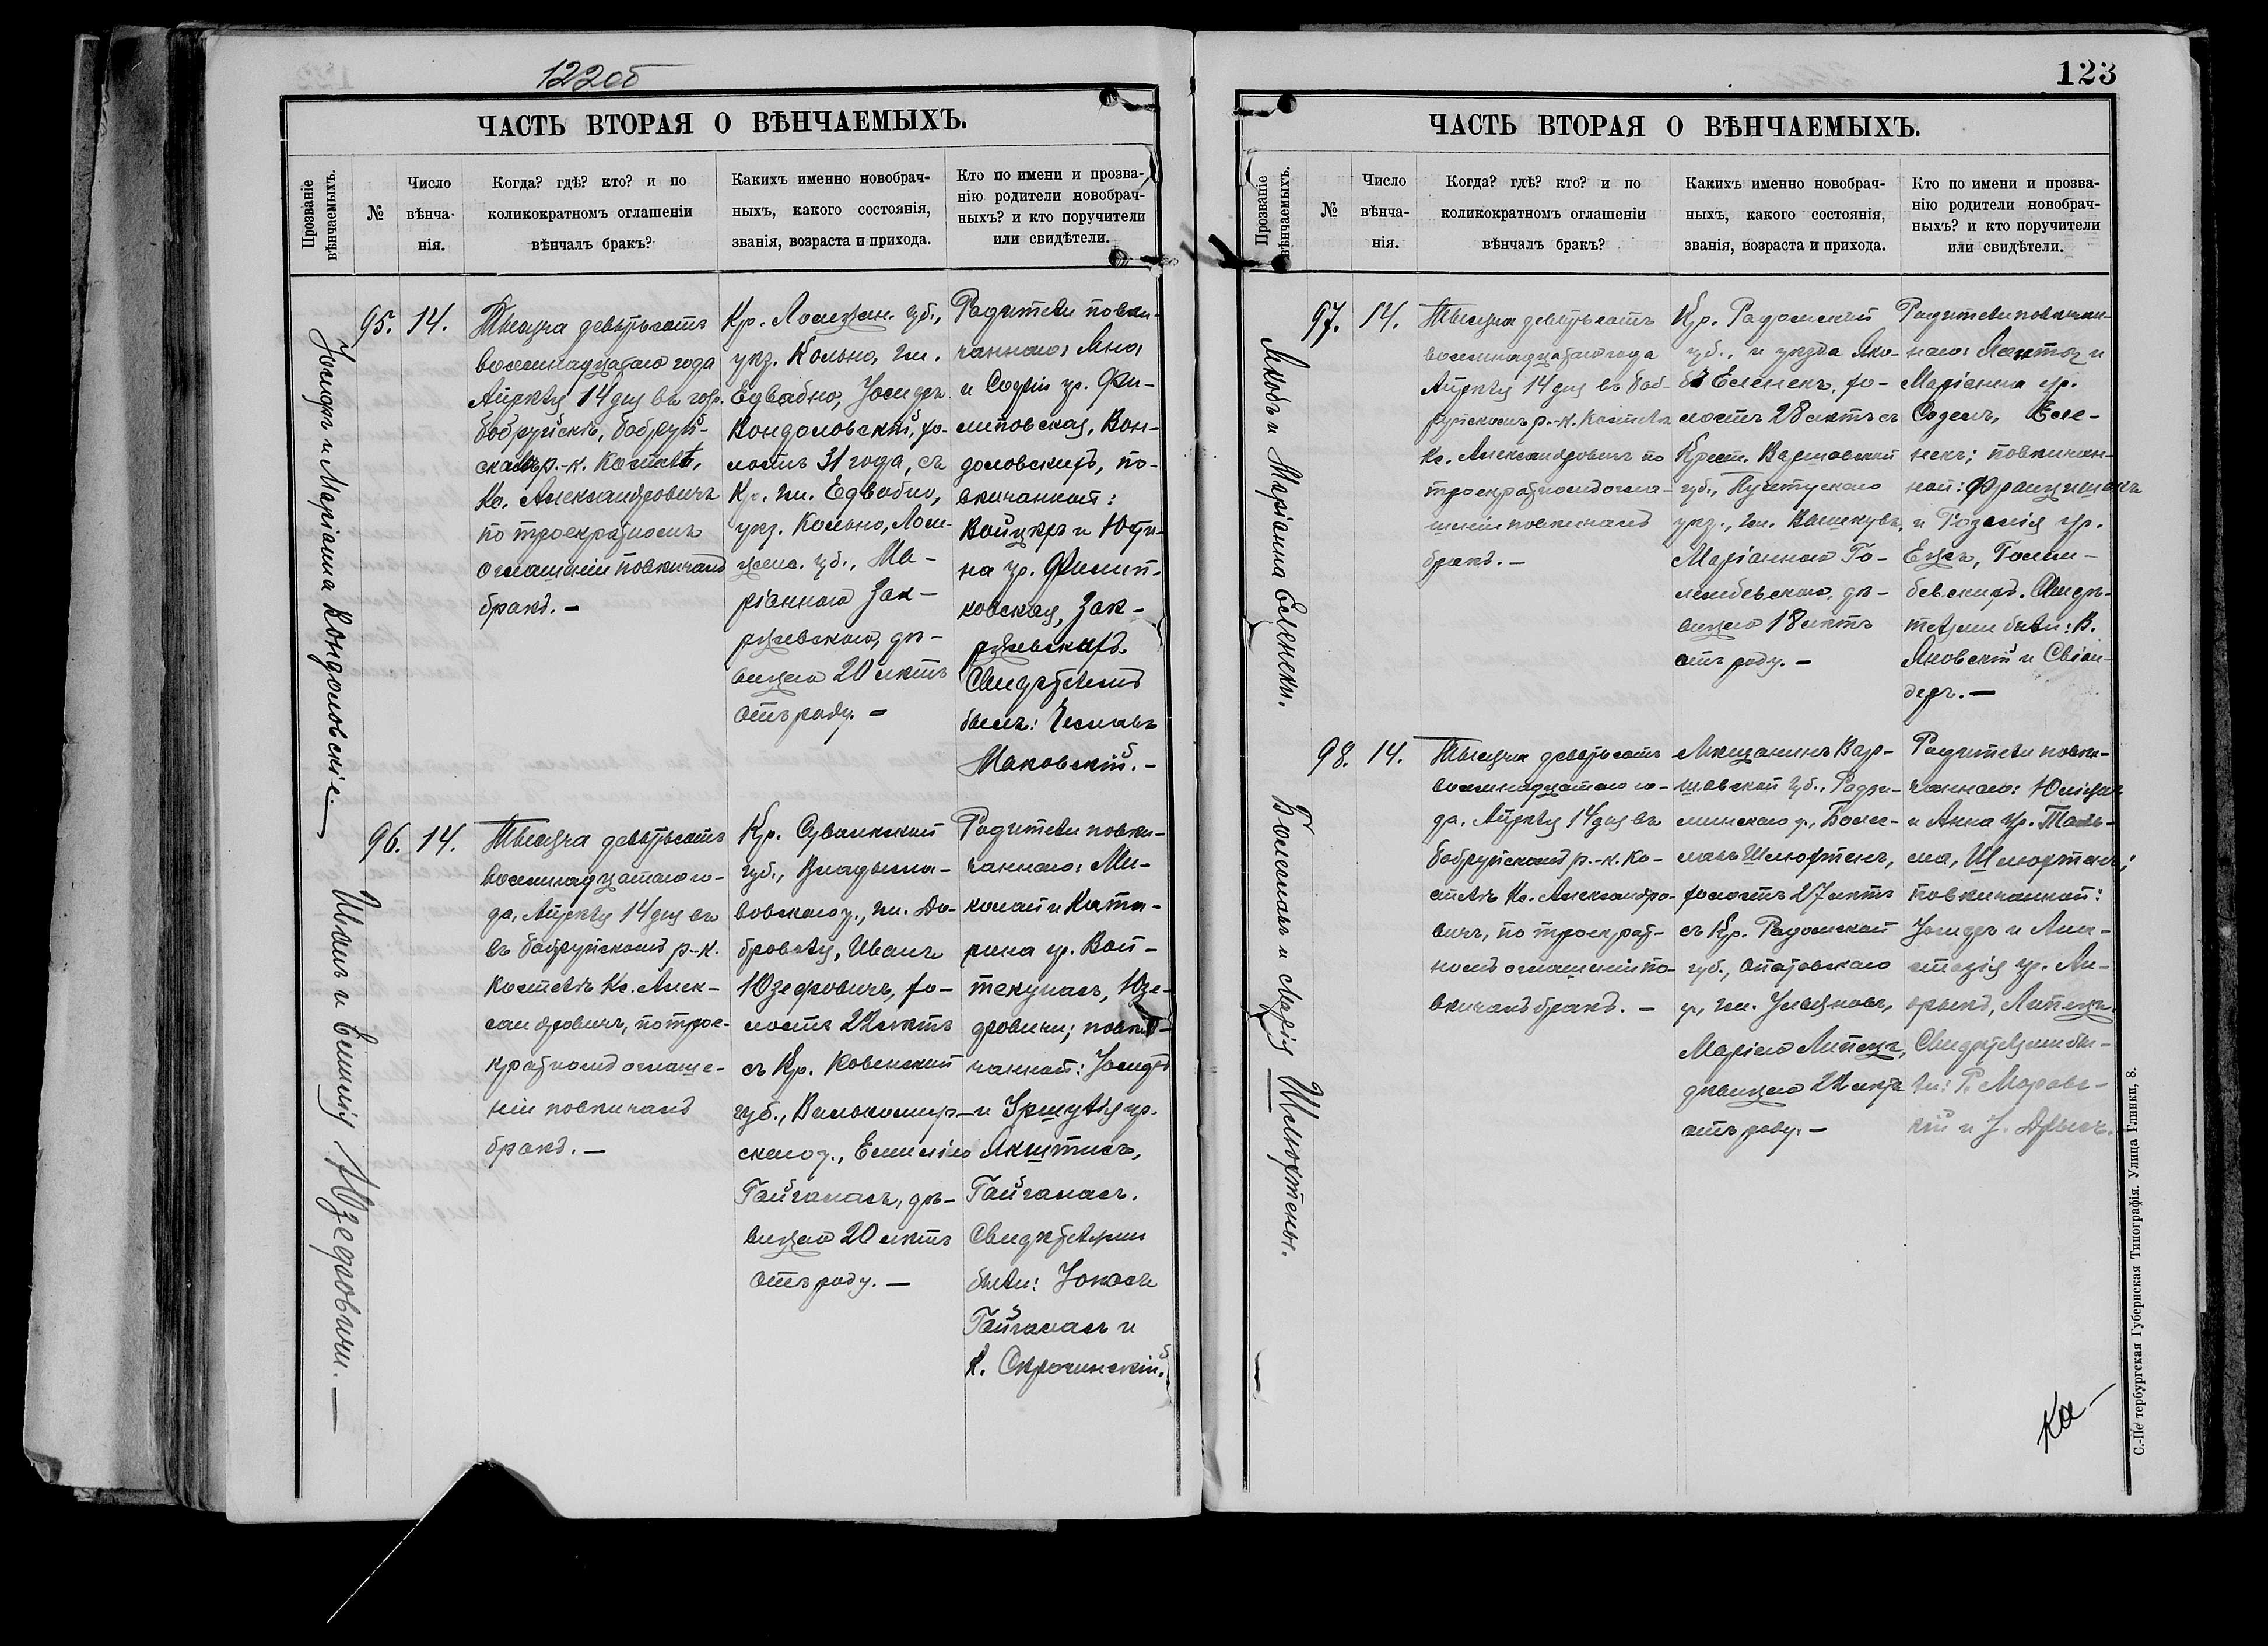 122об
ЧАСТЬ ВТОРАЯ О ВѢНЧАЕМЫХЪ.
Прозваніе
вѣнчаемыхъ.
№
Число
вѣнча-
нія.
Когда? гдѣ? кто? и по
коликократномъ оглашеніи
вѣнчалъ бракъ?
Какихъ именно новобрач-
ныхъ, какого состоянія,
званія, возраста и прихода.
Кто по имени и прозва-
нію родители новобрач-
ныхъ? и кто поручители
или свидѣтели.
Іосифъ и Маріанна Вондоловскіе.—
95.
14.
Тысяча девятьсотъ
восемнадцатаго года
Апрѣля 14 дня въ гор.
Бобруйскѣ, Бобруй-
скомъ р.-к. Костелѣ,
Кс. Александровичъ
по троекратномъ
оглашеніи повѣнчалъ
бракъ.—
Кр. Ломжин. губ.,
уѣз. Кольно, гм.
Едвабно, Іосифъ
Вондоловскій, хо-
лостъ 31 года, съ
Кр. гм. Едвабно,
уѣз. Кольно, Лом-
жин. губ., Ма-
ріанною Зак-
ржевскою, дѣ-
вицею 20 лѣтъ
отъ роду.—
Родители повѣн-
чаннаго: Яно
и Софіи ур. Фи-
липовская, Вон-
доловскихъ, по-
вѣнчанной:
Войцѣхъ и Юсти-
на ур. Филип-
ковская, Зак-
ржевскихъ.
Свидѣтелемъ
былъ: Чеславъ
Маковскій.—
Иванъ и Емилія Юзефовичи.—
96.
14.
Тысяча девятьсотъ
восемнадцатаго го-
да, Апрѣля 14 дня въ
въ Бобруйскомъ р-к.
Костелѣ Кс. Алек-
сандровичъ, по трое-
кратномъ оглаше-
ніи повѣнчалъ
бракъ.—
Кр. Сувалкской
губ., Владысла-
вовскаго у., гм. До-
бровля, Иванъ
Юзефовичъ, хо-
лостъ 22 лѣтъ
съ Кр. Ковенской
губ., Вилькомир-
скаго у., Емиліею
Гайгаласъ, дѣ-
вицею 20 лѣтъ
отъ роду.—
Родители повѣн-
чаннаго: Ми-
колай и Ката-
рина ур. Вой-
текунасъ, Юзе-
фовичи; повѣн-
чанной: Іосифъ
и Уршуля ур.
Якштисъ,
Гайгаласъ.
Свидѣтелями
были: Іонасъ
Гайгаласъ и
К. Окрочинскій.
123
ЧАСТЬ ВТОРАЯ О ВѢНЧАЕМЫХЪ.
Прозваніе
вѣнчаемыхъ.
№
Число
вѣнча-
нія.
Когда? гдѣ? кто? и по
коликократномъ оглашеніи
вѣнчалъ бракъ?
Какихъ именно новобрач-
ныхъ, какого состоянія,
званія, возраста и прихода.
Кто по имени и прозва-
нію родители новобрач-
ныхъ? и кто поручители
или свидѣтели.
Якобъ и Маріанна Еленеки.
97.
14.
Тысяча девятьсотъ
восемнадцатаго года
Апрѣля 14 дня въ Боб-
руйскомъ р.-к. Костелѣ
Кс. Александровичъ по
троекратномъ огла-
шеніи повѣнчалъ
бракъ.—
Кр. Радомской
губ., и уѣзда Яко-
бъ Еленекъ, хо-
лостъ 28 лѣтъ съ
Крест. Варшавской
губ., Пултускаго
уѣз., гм. Вышкувъ,
Маріанною Го-
лембевскою, дѣ-
вицею 18 лѣтъ
отъ роду.—
Родители повѣнчан-
наго:
Маріанна ур.
Еле-
некъ; повѣнчан-
ной: Францишекъ
и Розалія ур.
Голем-
бевскихъ. Свидѣ-
телями были: В.
Яновскій и
Болеславъ и Марія Шлюфтены.
98.
14.
Тысяча девятьсотъ
восемнадцатаго го-
да, Апрѣля 14 дня въ
Бобруйскомъ р.-к. Ко-
стелѣ Кс. Александро-
вичъ, по троекрат-
номъ оглашеніи по-
вѣнчалъ бракъ.—
Мѣщанинъ Вар-
шавской губ., Радзи-
минскаго у., Боле-
славъ Шлюфтенъ,
холостъ 27 лѣтъ
съ Кр. Радомской
губ., Опатовскаго
у., гм. Ульяновъ,
Маріею Липецъ,
дѣвицею 22 лѣтъ
отъ роду.—
Родители повѣн-
чаннаго: Юліянъ
и Анна ур. Таль-
ма, Шлюфтенъ;
повѣнчанной:
Іосифъ и Ана-
стазія ур. Ан-
дрыхъ, Липецъ.
Свидѣтелями бы-
ли: Р. Моравс-
кій и
Кс-
С.-Петербургская Губернская Типографія. Улица Глинки, 8.